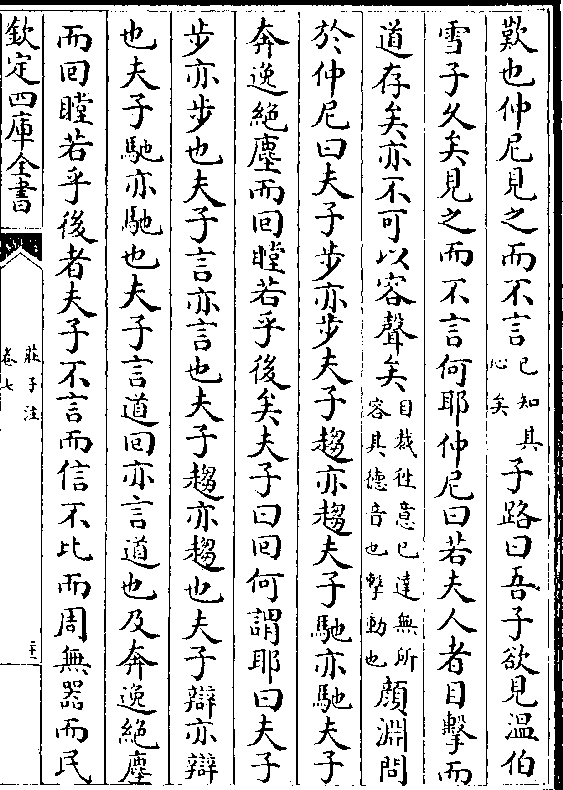 歎也仲尼見之而不言已知其心矣子路曰吾子欲見溫伯
雪子久矣見之而不言何耶仲尼曰若夫人者目擊而
道存矣亦不可以容聲矣目裁往意已達無所容其德音也擊動也顔淵問
於仲尼曰夫子步亦步夫子趨亦趨夫子馳亦馳夫子
奔逸絶塵而回瞠若乎後矣夫子曰回何謂耶曰夫子
步亦步也夫子言亦言也夫子趨亦趨也夫子辯亦辯
也夫子馳亦馳也夫子言道回亦言道也及奔逸絶塵
而回瞠若乎後者夫子不言而信不比而周無器而民
欽定四庫全書
莊子注
卷七